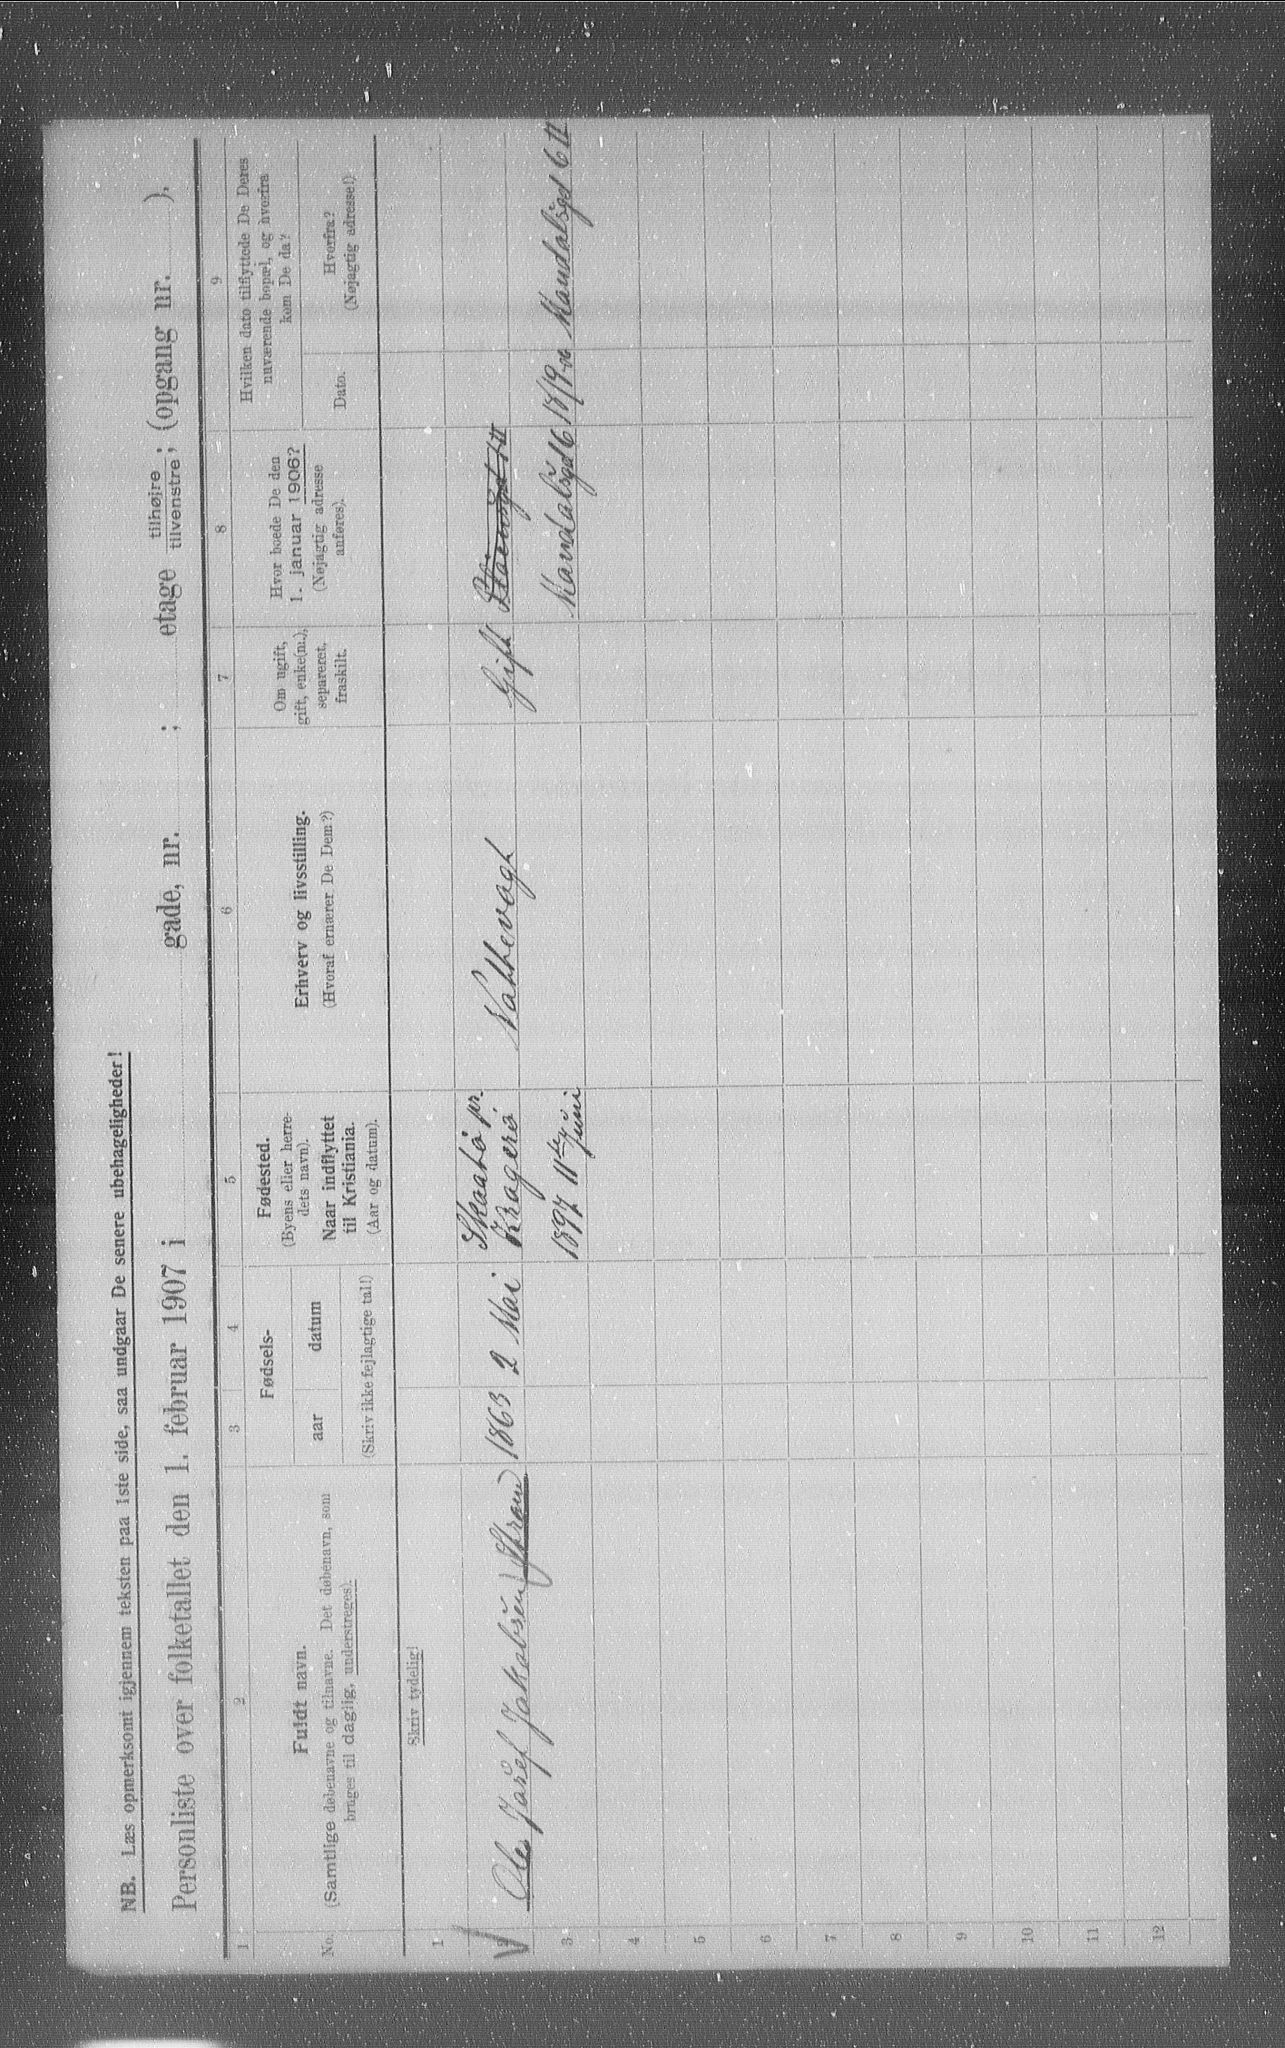 NB. Læs opmerksomt igjennem teksten paa 1ste side, saa undgaar De senere ubehageligheder!
Personliste over folketallet den 1. februar 1907 i gade, nr. ; etage tilhøjre tilvenstre; (opgang nr. ).
1 2 3 4 5 6 7 8 9
No.
Fuldt navn.
(Samtlige døbenavne og tilnavne. Det døbenavn, som
bruges til daglig, understreges).
Fødsels-
aar datum
(Skriv ikke fejlagtige tal!)
Fødested.
(Byens eller herre-
dets navn).
Naar indflyttet
til Kristiania.
(Aar og datum).
Erhverv og livsstilling.
(Hvoraf ernærer De Dem?)
Om ugift,
gift, enke(m.),
separeret,
fraskilt.
Hvor boede De den
1. januar 1906?
(Nøjagtig adresse
anføres).
Hvilken dato tilflyttede De Deres
nuværende bopæl, og hvorfra
kom De da?
Dato.
Hvorfra?
(Nøjagtig adresse!)
Skriv tydelig!
1
2 Ole Josef Jakobsen 1863 2 Mai Skaatø pr Kragerø Nattevagt Gift
3 1897 11te Juni Mandalsgd 6 18/9-06 Mandalsgd 6 II
4
5
6
7
8
9
10
11
12